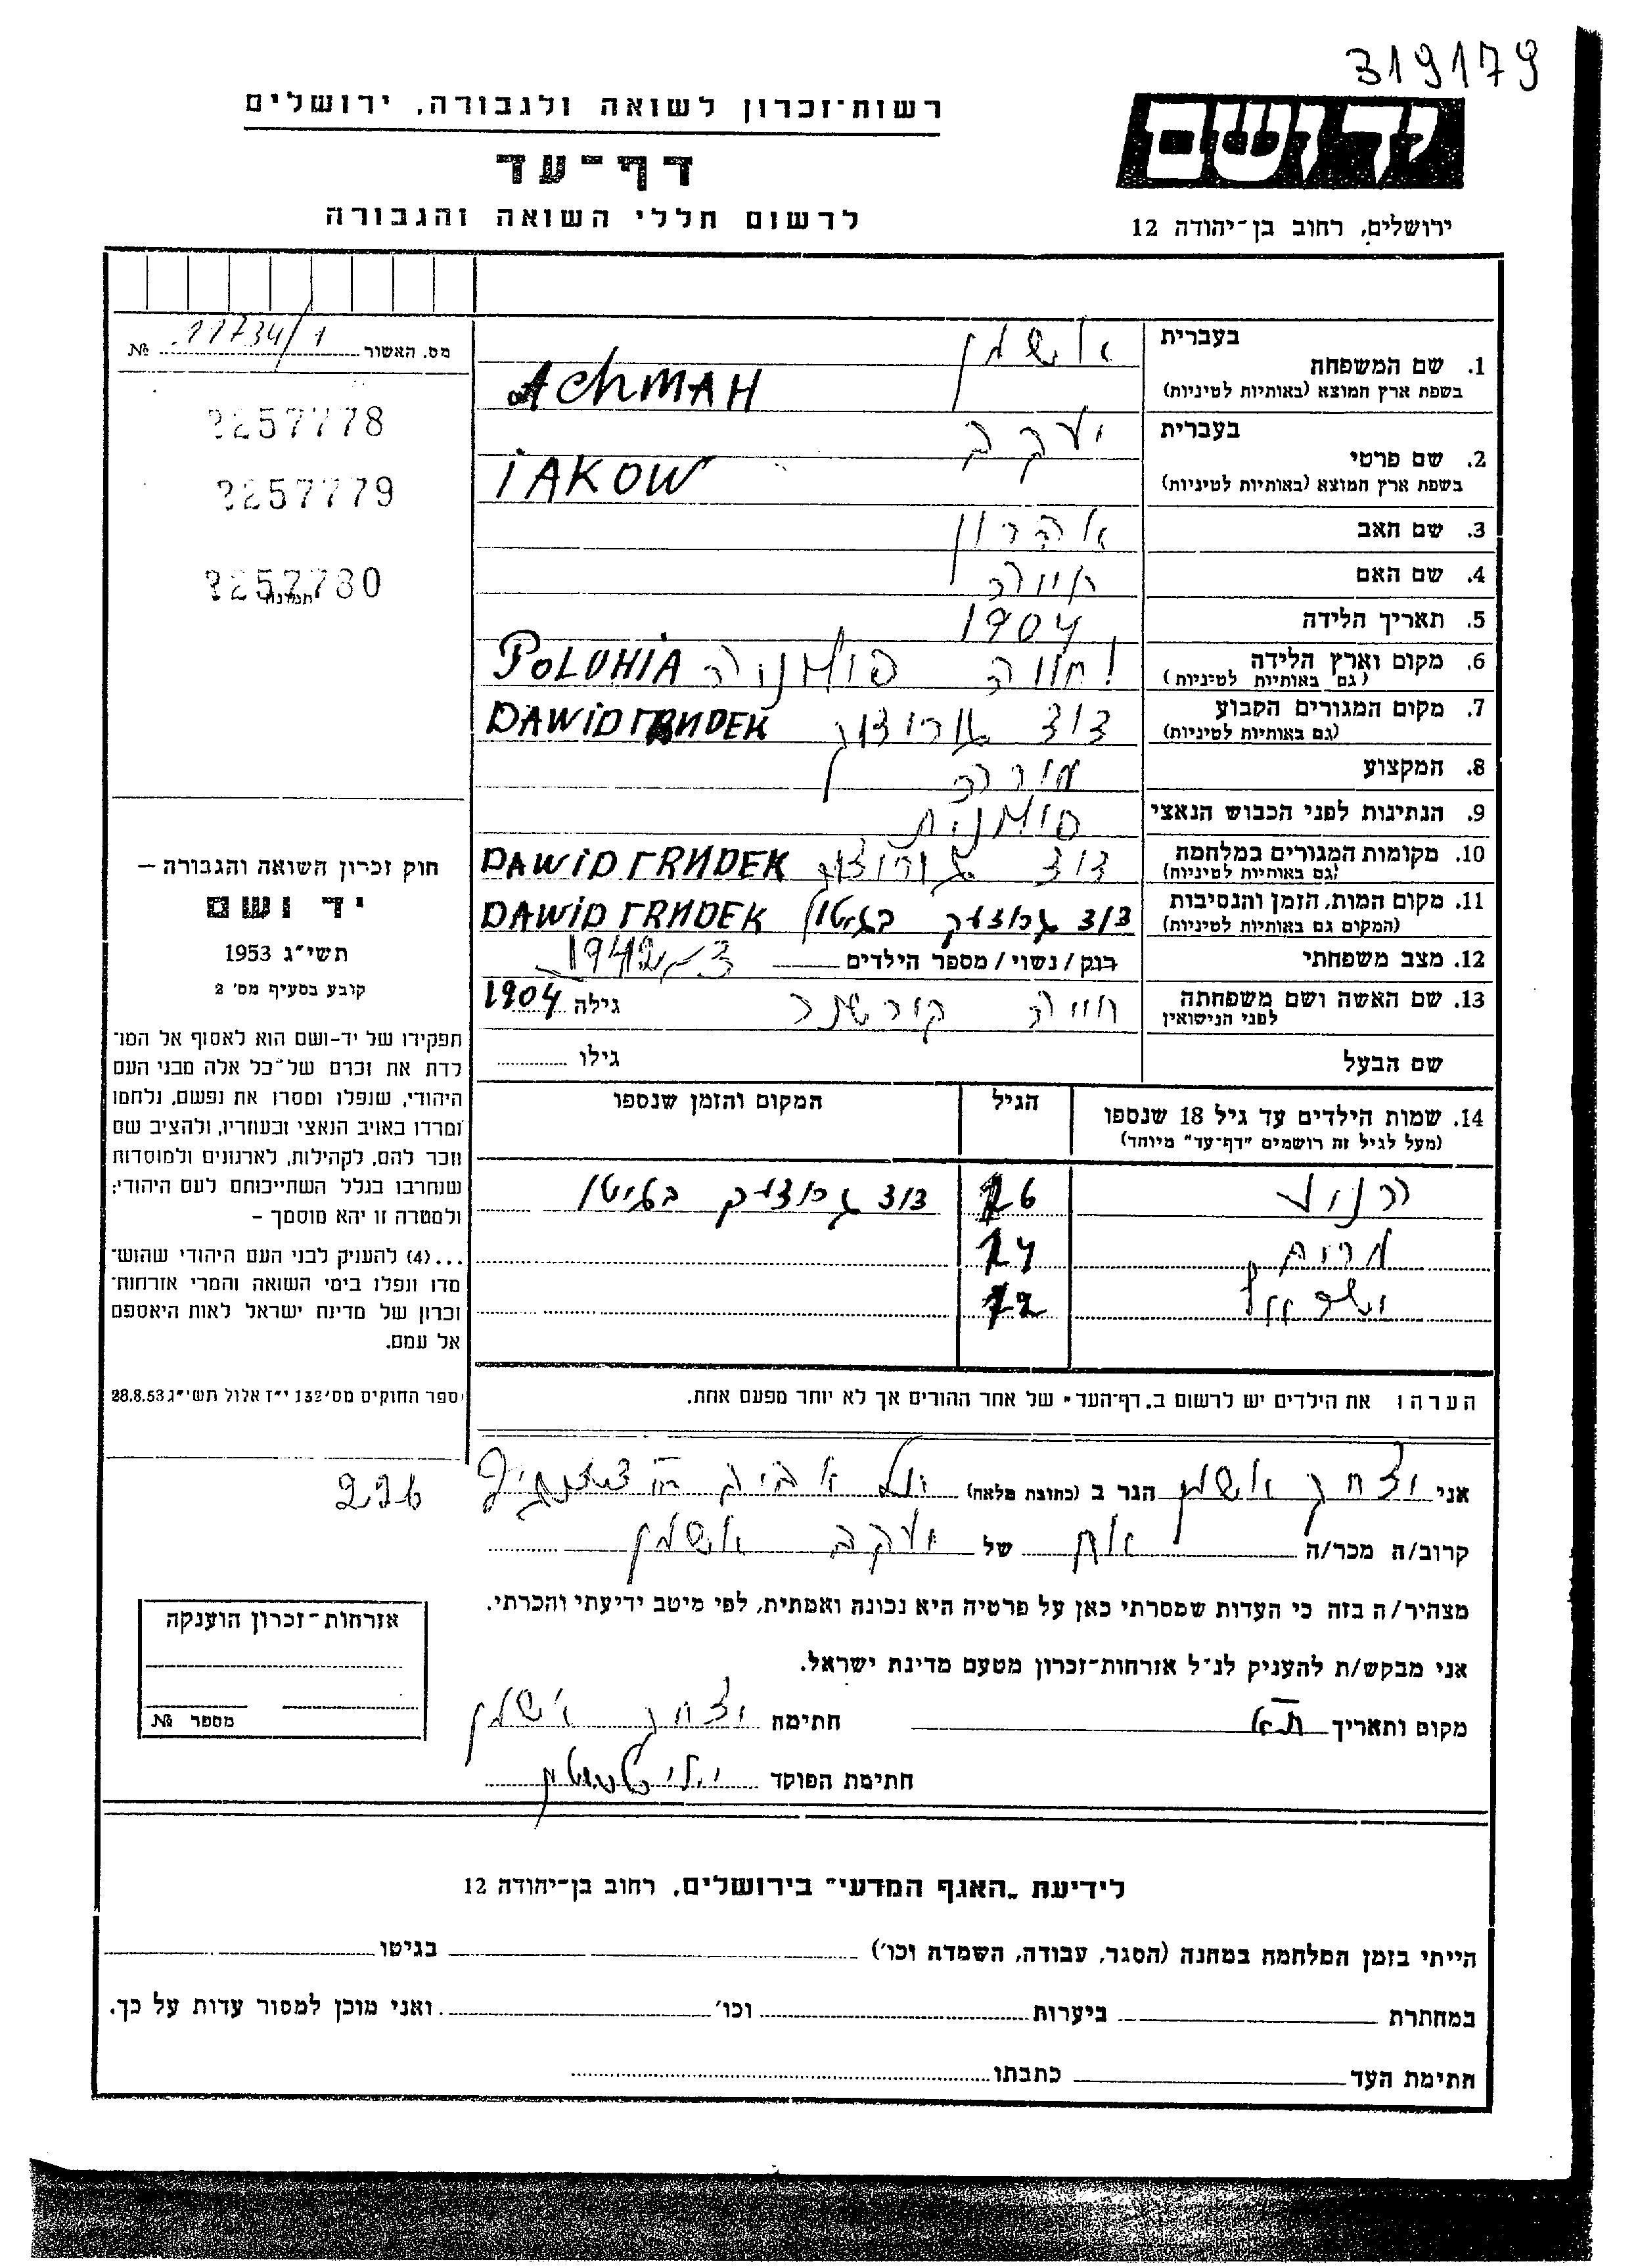 319179
רשות־זכרון לשואה ולגבורה, ירושלים
יד ושם
דף־עד
לרשום חללי השואה והגבורה
ירושלים, רחוב בן־יהודה 12
מס. האשור 11734/1 №
בעברית אשמן
1. שם המשפחה
בשפת ארץ המוצא (באותיות לטיניות) ACHMAH
בעברית יעקב
2. שם פרטי
בשפת ארץ המוצא (באותיות לטיניות) IAKOW
3. שם האב אהרון
4. שם האם
5. תאריך הלידה 1904
6. מקום וארץ הלידה
(גם באותיות לטיניות) פולניה POLUHIA
7. מקום המגורים הקבוע
(גם באותיות לטיניות) DAWIDГRИDEK
8. המקצוע מורה
9. הנתינות לפני הכבוש הנאצי פולנית
10. מקומות המגורים במלחמה
(גם באותיות לטיניות) DAWIDГRИDEK
11. מקום המות, הזמן והנסיבות
(המקום גם באותיות לטיניות) בגיטו DAWIDГRИDEK
12. מצב משפחתי רווק / נשוי / מספר הילדים 3 1942
13. שם האשה ושם משפחתה
לפני הנישואין חויה קורשנר גילה 1904
שם הבעל גילו
14. שמות הילדים עד גיל 18 שנספו
(מעל לגיל זה רושמים "דף־עד" מיוחד)
הגיל
המקום והזמן שנספו
16 בגיטו
מרים 14
12
הערה: את הילדים יש לרשום ב„דף־העד" של אחד ההורים אך לא יותר מפעם אחת.
2257778
2257779
2257780
תמונה
חוק זכרון השואה והגבורה —
יד ושם
תשי״ג 1953
קובע בסעיף מס׳ 2
תפקידו של יד-ושם הוא לאסוף אל המו־
לדת את זכרם של כל אלה מבני העם
היהודי, שנפלו ומסרו את נפשם, נלחמו
ומרדו באויב הנאצי ובעוזריו, ולהציב שם
וזכר להם, לקהילות, לארגונים ולמוסדות
שנחרבו בגלל השתייכותם לעם היהודי;
ולמטרה זו יהא מוסמך —
...(4) להעניק לבני העם היהודי שהוש־
מדו ונפלו בימי השואה והמרי אזרחות־
זכרון של מדינת ישראל לאות היאספם
אל עמם.
ספר החוקים מס׳ 132 י״ז אלול תשי״ג 28.8.53
226
אני יצחק אשמן הגר ב (כתובת מלאה) תל אביב
קרוב/ה מכר/ה אח של יעקב אשמן
מצהיר/ה בזה כי העדות שמסרתי כאן על פרטיה היא נכונה ואמתית, לפי מיטב ידיעתי והכרתי.
אני מבקש/ת להעניק לנ״ל אזרחות־זכרון מטעם מדינת ישראל.
מקום ותאריך ת״א חתימה יצחק אשמן
חתימת הפוקד
אזרחות־זכרון הוענקה
מספר №
לידיעת „האגף המדעי" בירושלים, רחוב בן־יהודה 12
הייתי בזמן המלחמה במחנה (הסגר, עבודה, השמדה וכו׳) בגיטו
במחתרת ביערות וכו׳ ואני מוכן למסור עדות על כך.
חתימת העד כתבתו